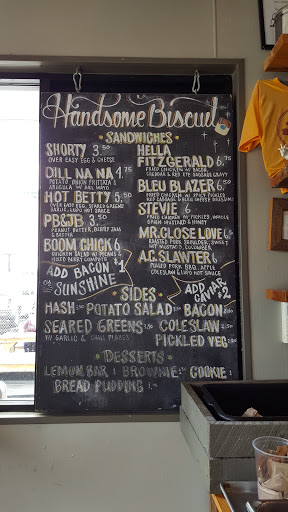 Handsome Biscuit
SANDWICHES
SHORTY 3.50
OVER EASY EGG & CHEESE
DILL NA NA 4.75
POTATO ONION FRITTATA &
ARUGULA W/ DILL MAYO
HOT BETTY 5.50
OVER EASY EGG, SEARED GREENS
GARLIC, LUPO HOT SAUCE
PB&JB 3.50
PEANUT BUTTER, BERRY JAM
& BUTTER
BOOM CHICK 6
CHICKEN SALAD W/ PECANS &
MIXED BERRY COMPOTE
ADD BACON $1
OR
SUNSHINE
HELLA
FITZGERALD 6.75
FRIED CHICKEN W/ BACON,
CHEDDAR & RED EYE SAUSAGE GRAVY
BLEU BLAZER 6.50
FRIED CHICKEN W/ SPICY PICKLED
RED CABBAGE & BLEU CHEESE
STEVIE 6
FRIED CHICKEN W/ PICKLES, WHOLE
GRAIN MUSTARD & HONEY
MR. CLOSE LOVE 6
ROASTED PORK SHOULDER, SWEET
HOT MUSTARD, CUCUMBER
A.C. SLAWTER 6
PULLED PORK BBQ, APPLE
COLESLAW & LUPO HOT SAUCE
ADD
GRAVY $2
SIDES
HASH POTATO SALAD BACON
SEARED GREENS COLESLAW
W/ GARLIC & CHILI FLAKES
PICKLED VEG
DESSERTS
LEMON BAR BROWNIE COOKIE
BREAD PUDDING